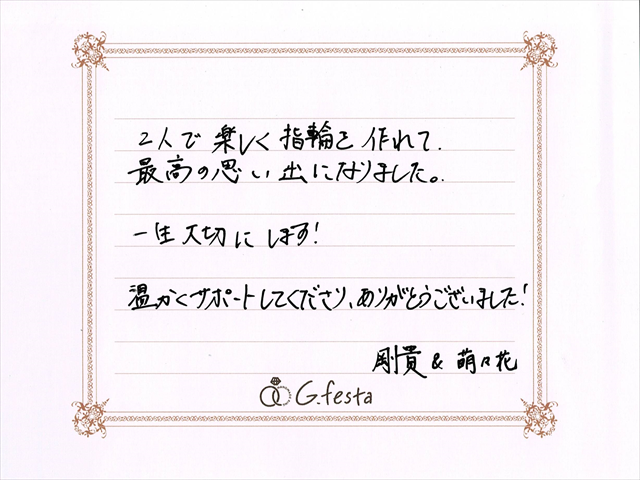 2人で楽しく指輪を作れて.
最高の思い出になりました。
一生大切にします!
温かくサポートしてくださり、ありがとうございました!
剛貴 & 萌々花
G.festa